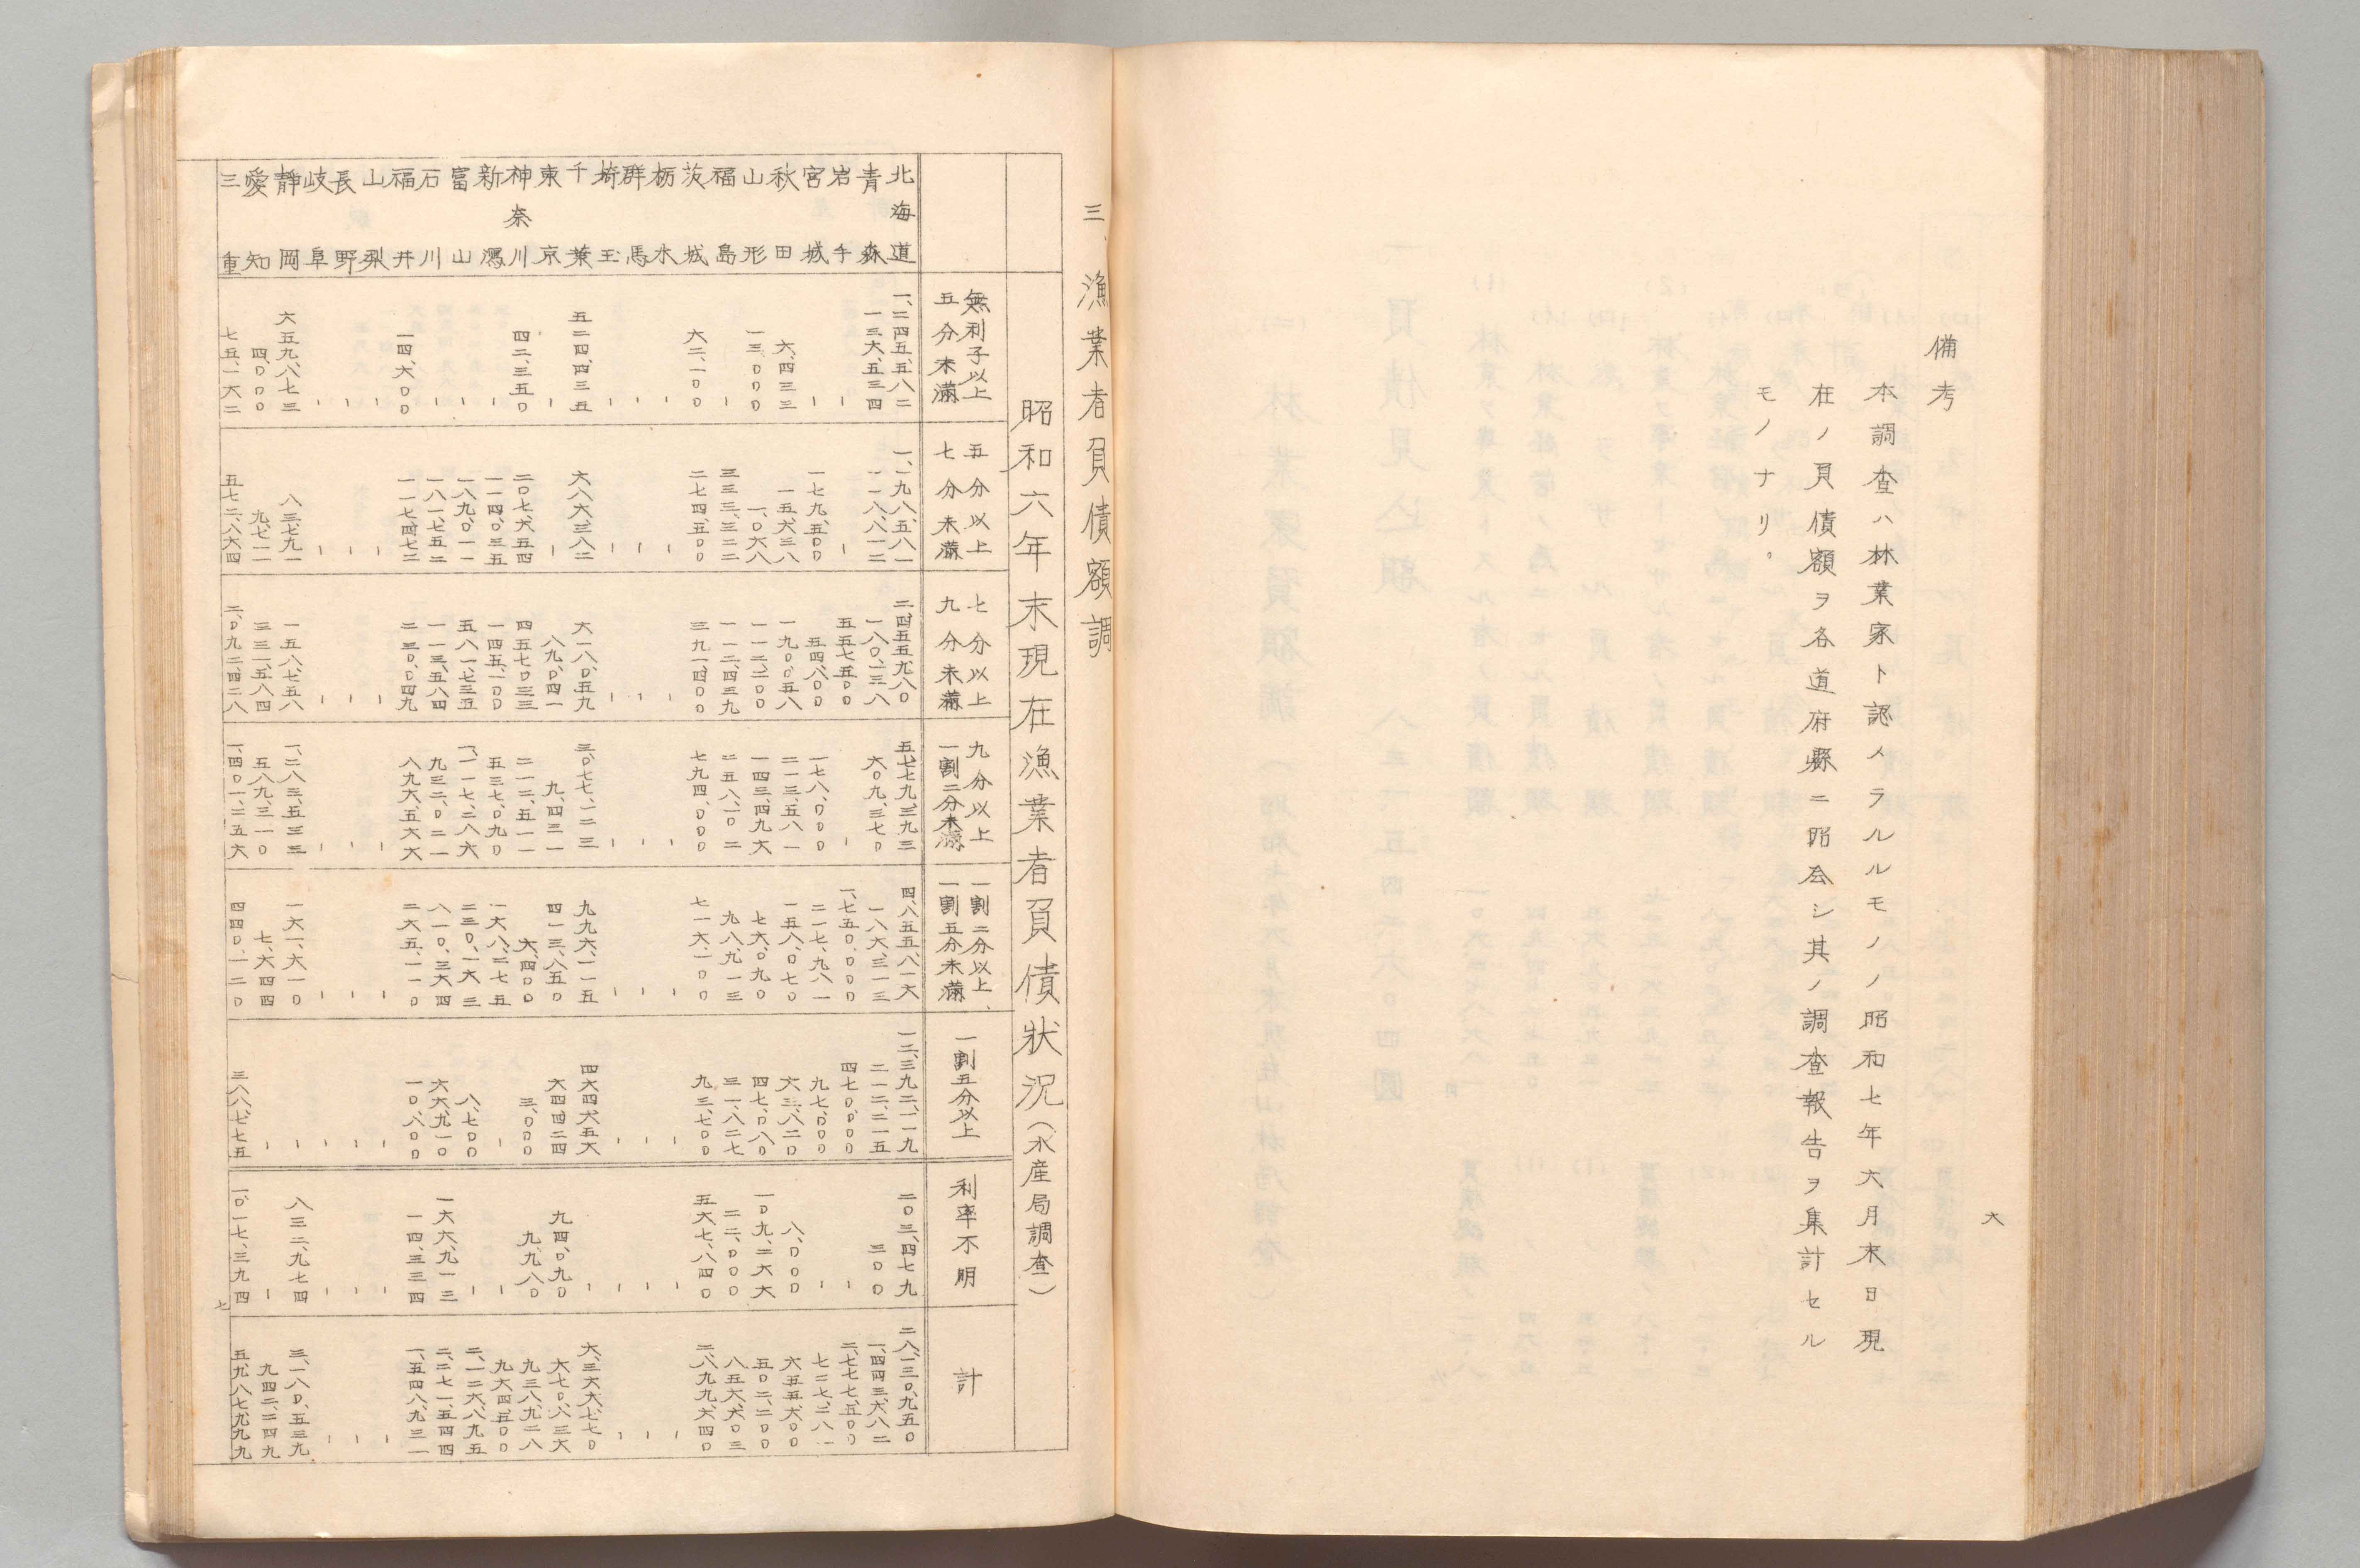 六
備考
本調査ハ林業家ト認メラルルモノノ昭和七年六月末日現
在ノ負債額ヲ各道府縣ニ照会シ其ノ調査報告ヲ集計セル
モノナリ。
三、漁業者負債額調
昭和六年末現在漁業者負債状況(水産局調査)
無利子以上五分未満 五分以上七分未満 七分以上九分未満 九分以上一割二分未満 一割二分以上一割五分未満 一割五分以上 利率不明 計
北海道 一、二四五、五八二 一、一九八、五八一 二、四五五、九八〇 五、七七九、三九三 四、八五五、八一六 一二、三九二、一一九 二〇三、四七九 二八、一三〇、九五〇
青森 一三六、五三四 一一八、八一二 一八〇、一三八 六〇九、三七〇 一八六、三一三 二一二、二一五 三〇〇 一、四四三、六八二
岩手 ― ― 五五七、五〇〇 ― 一、七五〇、〇〇〇 四七〇、〇〇〇 ― 二、七七七、五〇〇
宮城 ― 一七九、五〇〇 五四、八〇〇 一七八、〇〇〇 二一七、九八一 九七、〇〇〇 ― 七二七、二八一
秋田 六、四三三 一五、六三八 一九〇、〇五八 二一三、五八一 一五八、〇七〇 六三、八二〇 八、〇〇〇 六五五、六〇〇
山形 一三、〇〇〇 一、〇六八 一一二、二〇〇 一四三、四九六 七六、〇九〇 四七、〇八〇 一〇九、二六六 五〇二、二〇〇
福島 ― 三三三、三二二 一一二、四三九 二五八、一〇二 九八、九一三 三一、八二七 二二、〇〇〇 八五六、六〇三
茨城 六二、一〇〇 二七四、五〇〇 三九一、四〇〇 七九四、〇〇〇 七一六、一〇〇 九三、七〇〇 五六七、八四〇 二、八九九、六四〇
栃木 ― ― ― ― ― ― ― ―
群馬 ― ― ― ― ― ― ― ―
埼玉 ― ― ― ― ― ― ― ―
千葉 五二四、四三五 六八六、三八二 六一八、〇五九 三、〇七七、一二三 九九六、一一五 四六四、六五六 ― 六、三六六、七七〇
東京 ― ― 八九、〇四一 九、四三一 四一三、八五〇 六四、四二四 九四、〇九〇 六七〇、八三六
神奈川 四二、三五〇 二〇七、六五四 四五七、〇三三 二一二、五一一 六、四〇〇 三、〇〇〇 九、九八〇 九三八、九二八
新潟 ― 一一四、〇三五 一四五、一〇〇 五三七、〇九〇 一六八、二七五 ― ― 九六四、五〇〇
富山 ― 一八九、〇一一 五八一、七三五 一、一一七、二八六 二三〇、一六三 八、七〇〇 ― 二、一二六、八九五
石川 ― 一八一、七五二 一一三、五八四 九三二、〇二一 八一〇、三六四 六六、九一〇 一六六、九一三 二、二七一、五四四
福井 一四、六〇〇 一一七、四七二 二三〇、〇四九 八九六、五六六 二六五、一一〇 一〇、八〇〇 一四、三三四 一、五四八、九三一
山梨 ― ― ― ― ― ― ― ―
長野 ― ― ― ― ― ― ― ―
岐阜 ― ― ― ― ― ― ― ―
靜岡 六五九、八七三 八三、七九一 一五八、七五八 一、二八三、五三三 一六一、六一〇 ― 八三二、九七四 三、一八〇、五三九
愛知 四、〇〇〇 九、七一一 三三一、五八四 五八九、三一〇 七、六四四 ― ― 九四二、二四九
三重 七五、一六二 五七二、八六四 二、〇九二、四二八 一、四〇一、二五六 四四〇、一二〇 三八八、七七五 一、〇一七、三九四 五、九八七、九九九
七